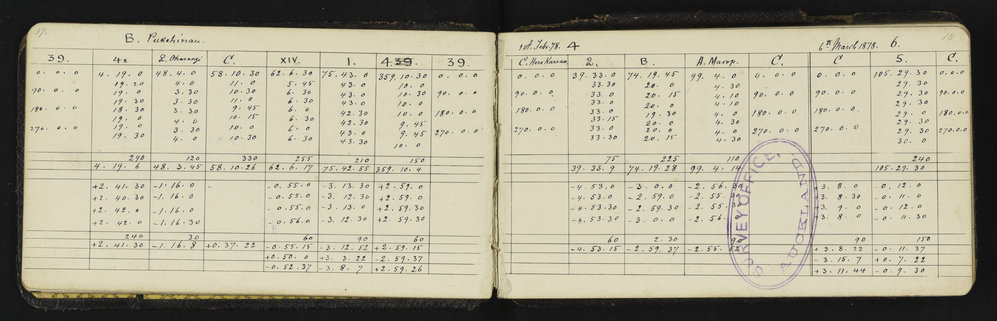 17.
B. Pukehinau.
39. 4x 2. C. XIV. 1. 439. 39.
0. 0. 0 4. 19. 0 48. 4. 0 58. 10. 30 62. 6. 30 75. 43. 0 359. 10. 30 0. 0. 0
19. 20 4. 0 10. 0 5. 45 43. 0 10. 0
90. 0. 0 19. 0 3. 30 10. 0 6. 0 43. 0 10. 0 90. 0. 0
19. 30 3. 30 11. 0 6. 30 43. 0 10. 0
180. 0. 0 18. 30 3. 30 9. 45 6. 0 42. 30 10. 0 180. 0. 0
19. 0 4. 0 10. 15 6. 30 42. 30 9. 45
270. 0. 0 19. 0 3. 30 10. 0 6. 0 43. 0 9. 45 270. 0. 0
19. 30 4. 0 10. 30 6. 30 43. 30 10. 0
290 120 330 255 210 150
4. 19. 6 48. 3. 45 58. 10. 26 62. 6. 17 75. 42. 55 359. 10. 4
+2. 41. 30 -1. 16. 0 - -0. 55. 0 -3. 13. 30 +2. 59. 0
+2. 40. 30 -1. 16. 0 -0. 55. 0 -3. 12. 30 +2. 59. 0
+2. 42. 0 -1. 16. 0 -0. 55. 0 -3. 13. 0 +2. 59. 30
+2. 42. 0 -1. 16. 30 -0. 56. 0 -3. 12. 30 +2. 59. 30
240 30 60 90 60
+2. 41. 30 -1. 16. 8 +0. 37. 22 -0. 55. 15 -3. 12. 52 +2. 59. 15
+0. 50. 0 +3. 3. 22 -2. 59. 37
-0. 52. 37 -3. 8. 7 +2. 59. 26
18.
1st. Feb. 78. 4 6th March 1878. 6.
2. B. C. C. 5. C.
0. 0. 0 39. 33. 0 74. 19. 45 99. 4. 0 0. 0. 0 0. 0. 0 105. 29. 30 0. 0. 0
33. 30 20. 0 4. 30 29. 30
90. 0. 0 33. 0 20. 15 4. 30 90. 0. 0 90. 0. 0 29. 30 90. 0. 0
33. 0 20. 0 4. 0 29. 30
180. 0. 0 33. 0 19. 30 4. 0 180. 0. 0 180. 0. 0 29. 0 180. 0. 0
33. 15 20. 0 4. 30 29. 30
270. 0. 0 33. 0 20. 0 4. 0 270. 0. 0 270. 0. 0 29. 30 270. 0. 0
33. 30 20. 15 4. 30 30. 0
75 225 110 240
39. 33. 9 74. 19. 28 99. 4. 14 105. 29. 30
-4. 53. 0 -3. 0. 0 -2. 56. +3. 8. 0 -0. 12. 0
-4. 53. 0 -2. 59. 0 -2. 55. +3. 8. 30 -0. 11. 0
-4. 53. 30 -2. 59. 30 -2. 55. +3. 9. 0 -0. 12. 0
-4. 53. 30 -3. 0. 0 -2. 56. +3. 8. 0 -0. 11. 30
60 2. 30 90 90 150
-4. 53. 15 -2. 59. 37 -2. 55. 52 +3. 8. 22 -0. 11. 37
-3. 15. 7 +0. 7. 22
+3. 11. 44 -0. 9. 30
SURVEY OFFICE,
AUCKLAND